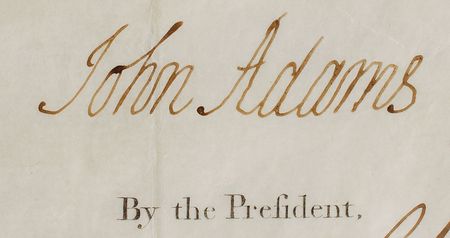 John Adams
By the Preſident,